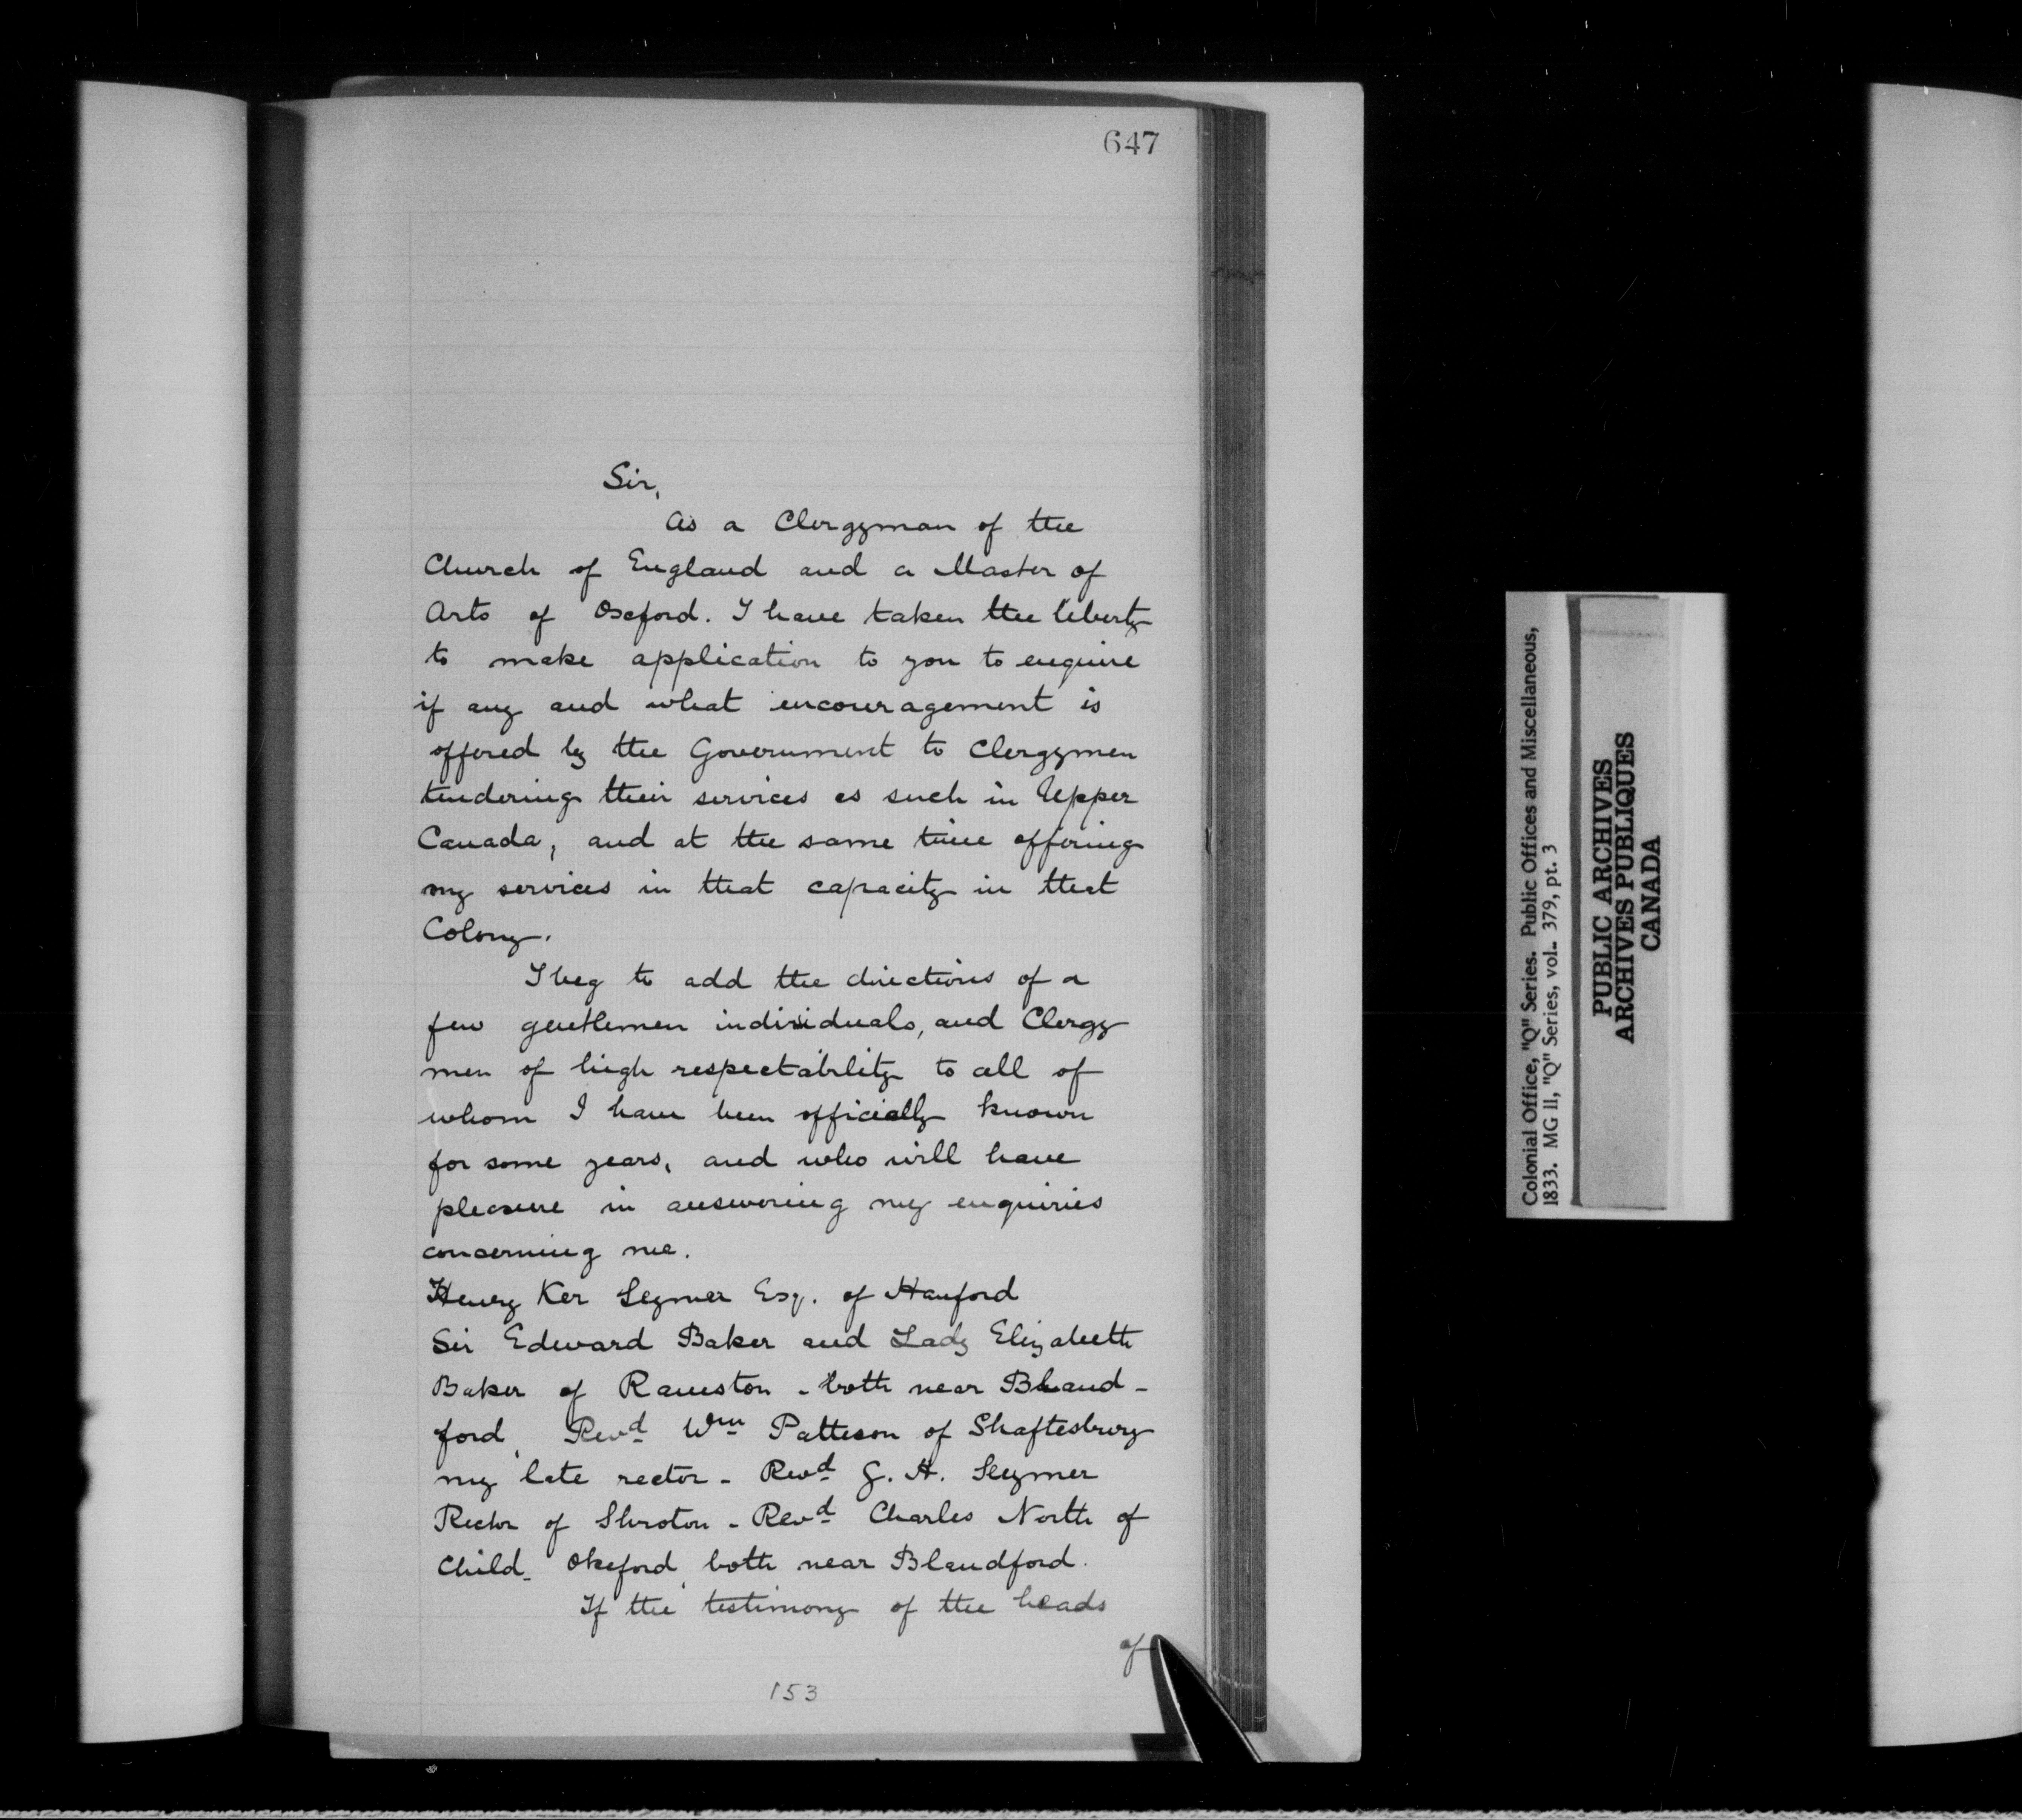 647
Sir,
As a Clergyman of the
Church of England and a Master of
Arts of Oxford. I have taken the liberty
to make application to you to enquire
if any and what encouragement is
offered by the Government to Clergymen
tendering their services as such in Upper
Canada, and at the same time offering
my services in that capacity in that
Colony.
I beg to add the directions of a
few gentlemen individuals, and Clergy
men of high respectability to all of
whom I have been officially known
for some years, and who will have
pleasure in answering my enquiries
concerning me.
Henry Ker Seymer Esq. of Hanford
Sir Edward Baker and Lady Elizabeth
Baker of Ranston - both near Bland-
ford, Revd Wm Patteson of Shaftesbury
my late rector - Revd G. A. Seymer
Rector of Shroton - Revd Charles North of
Child- Okeford, both near Blandford.
If the testimony of the heads
of
153
Colonial Office, "Q" Series. Public Offices and Miscellaneous,
1833. MG 11, "Q" Series, vol. 379, pt. 3
PUBLIC ARCHIVES
ARCHIVES PUBLIQUES
CANADA